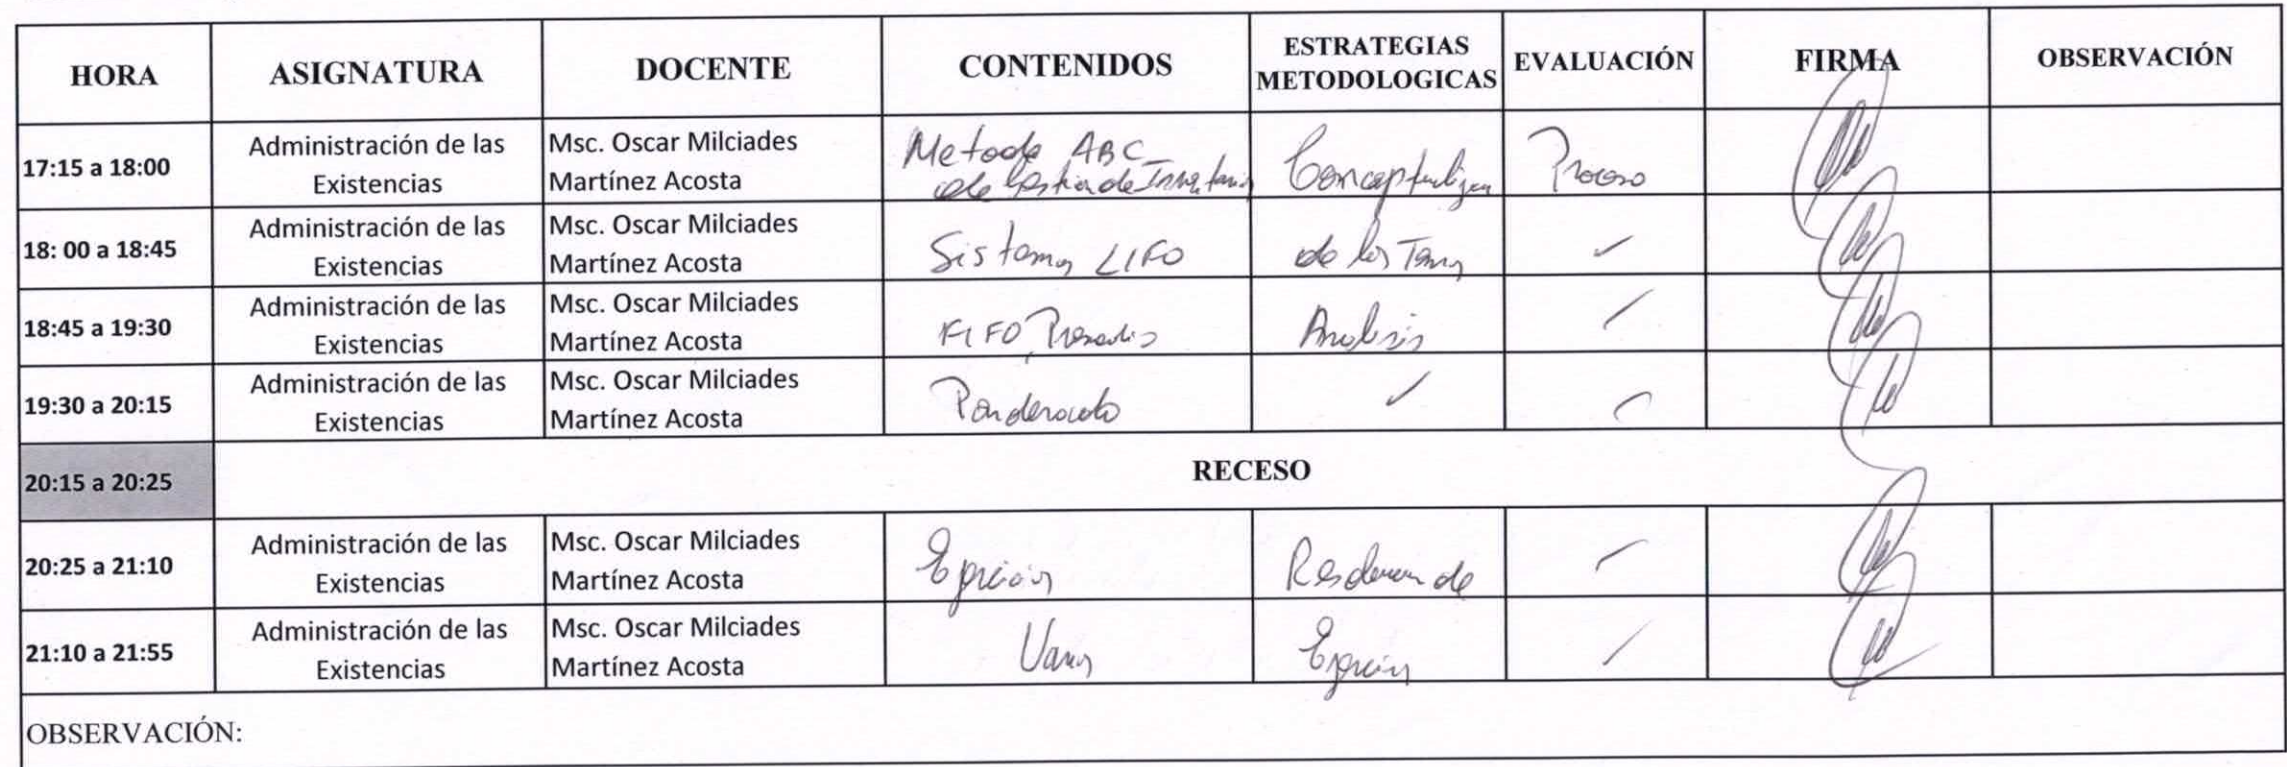 HORA ASIGNATURA DOCENTE CONTENIDOS ESTRATEGIAS METODOLOGICAS EVALUACIÓN FIRMA OBSERVACIÓN
17:15 a 18:00 Administración de las Existencias Msc. Oscar Milciades Martínez Acosta Metodo ABC de Gestion de Inventario Proceso
18: 00 a 18:45 Administración de las Existencias Msc. Oscar Milciades Martínez Acosta Sistemas LIFO de los Temas
18:45 a 19:30 Administración de las Existencias Msc. Oscar Milciades Martínez Acosta FIFO, Promedio Analisis
19:30 a 20:15 Administración de las Existencias Msc. Oscar Milciades Martínez Acosta Ponderado
20:15 a 20:25 RECESO
20:25 a 21:10 Administración de las Existencias Msc. Oscar Milciades Martínez Acosta de
21:10 a 21:55 Administración de las Existencias Msc. Oscar Milciades Martínez Acosta Varios
OBSERVACIÓN: